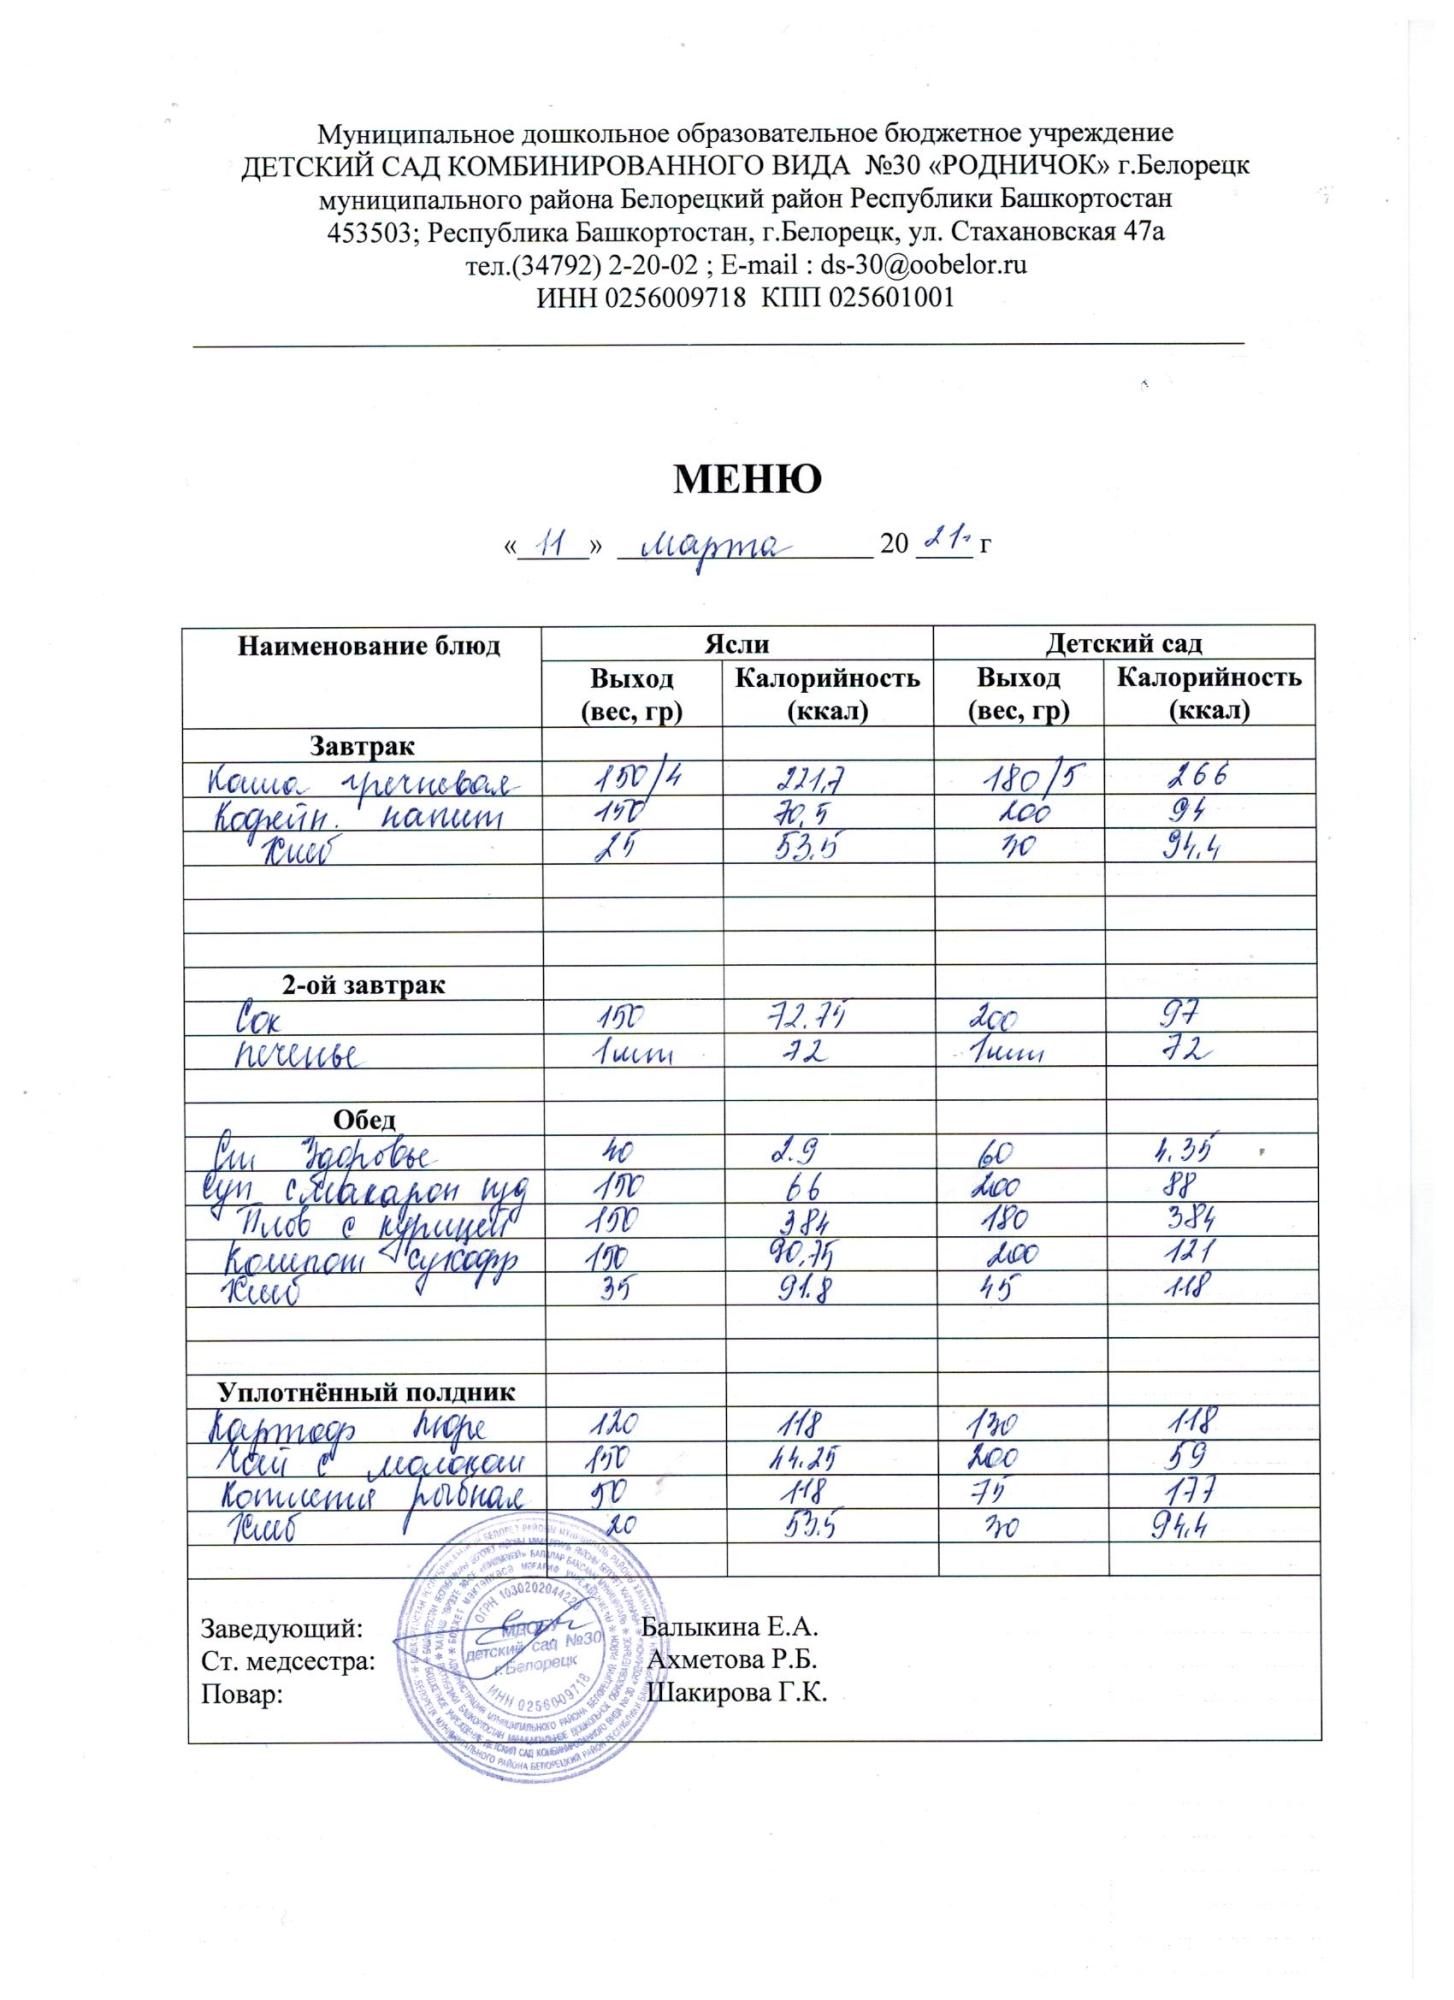 Муниципальное дошкольное образовательное бюджетное учреждение
ДЕТСКИЙ САД КОМБИНИРОВАННОГО ВИДА №30 «РОДНИЧОК» г.Белорецк
муниципального района Белорецкий район Республики Башкортостан
453503; Республика Башкортостан, г.Белорецк, ул. Стахановская 47а
тел.(34792) 2-20-02 ; E-mail : ds-30@oobelor.ru
ИНН 0256009718 КПП 025601001
МЕНЮ
« 11 » марта 20 21г г
Наименование блюд Ясли Детский сад
Выход (вес, гр) Калорийность (ккал) Выход (вес, гр) Калорийность (ккал)
Завтрак
Каша гречневая 150/4 221,7 180/5 266
Кофейн. напит 150 70,5 200 94
Хлеб 25 53.5 30 94.4
2-ой завтрак
Сок 150 72.75 200 97
печенье 1шт 72 1шт 72
Обед
Здоровье 40 2.9 60 4.35
Суп с макарон изд 150 66 200 88
Плов с курицей 150 384 180 384
Компот сухофр 150 90,75 200 121
Хлеб 35 91.8 45 118
Уплотнённый полдник
Картоф пюре 120 118 130 118
Чай с молоком 150 44.25 200 59
Котлета рыбная 50 118 75 177
Хлеб 20 53.5 30 94,4
Заведующий: Балыкина Е.А.
Ст. медсестра: Ахметова Р.Б.
Повар: Шакирова Г.К.
МДОБУ
детский сад №30
г.Белорецк
ИНН 0256009718